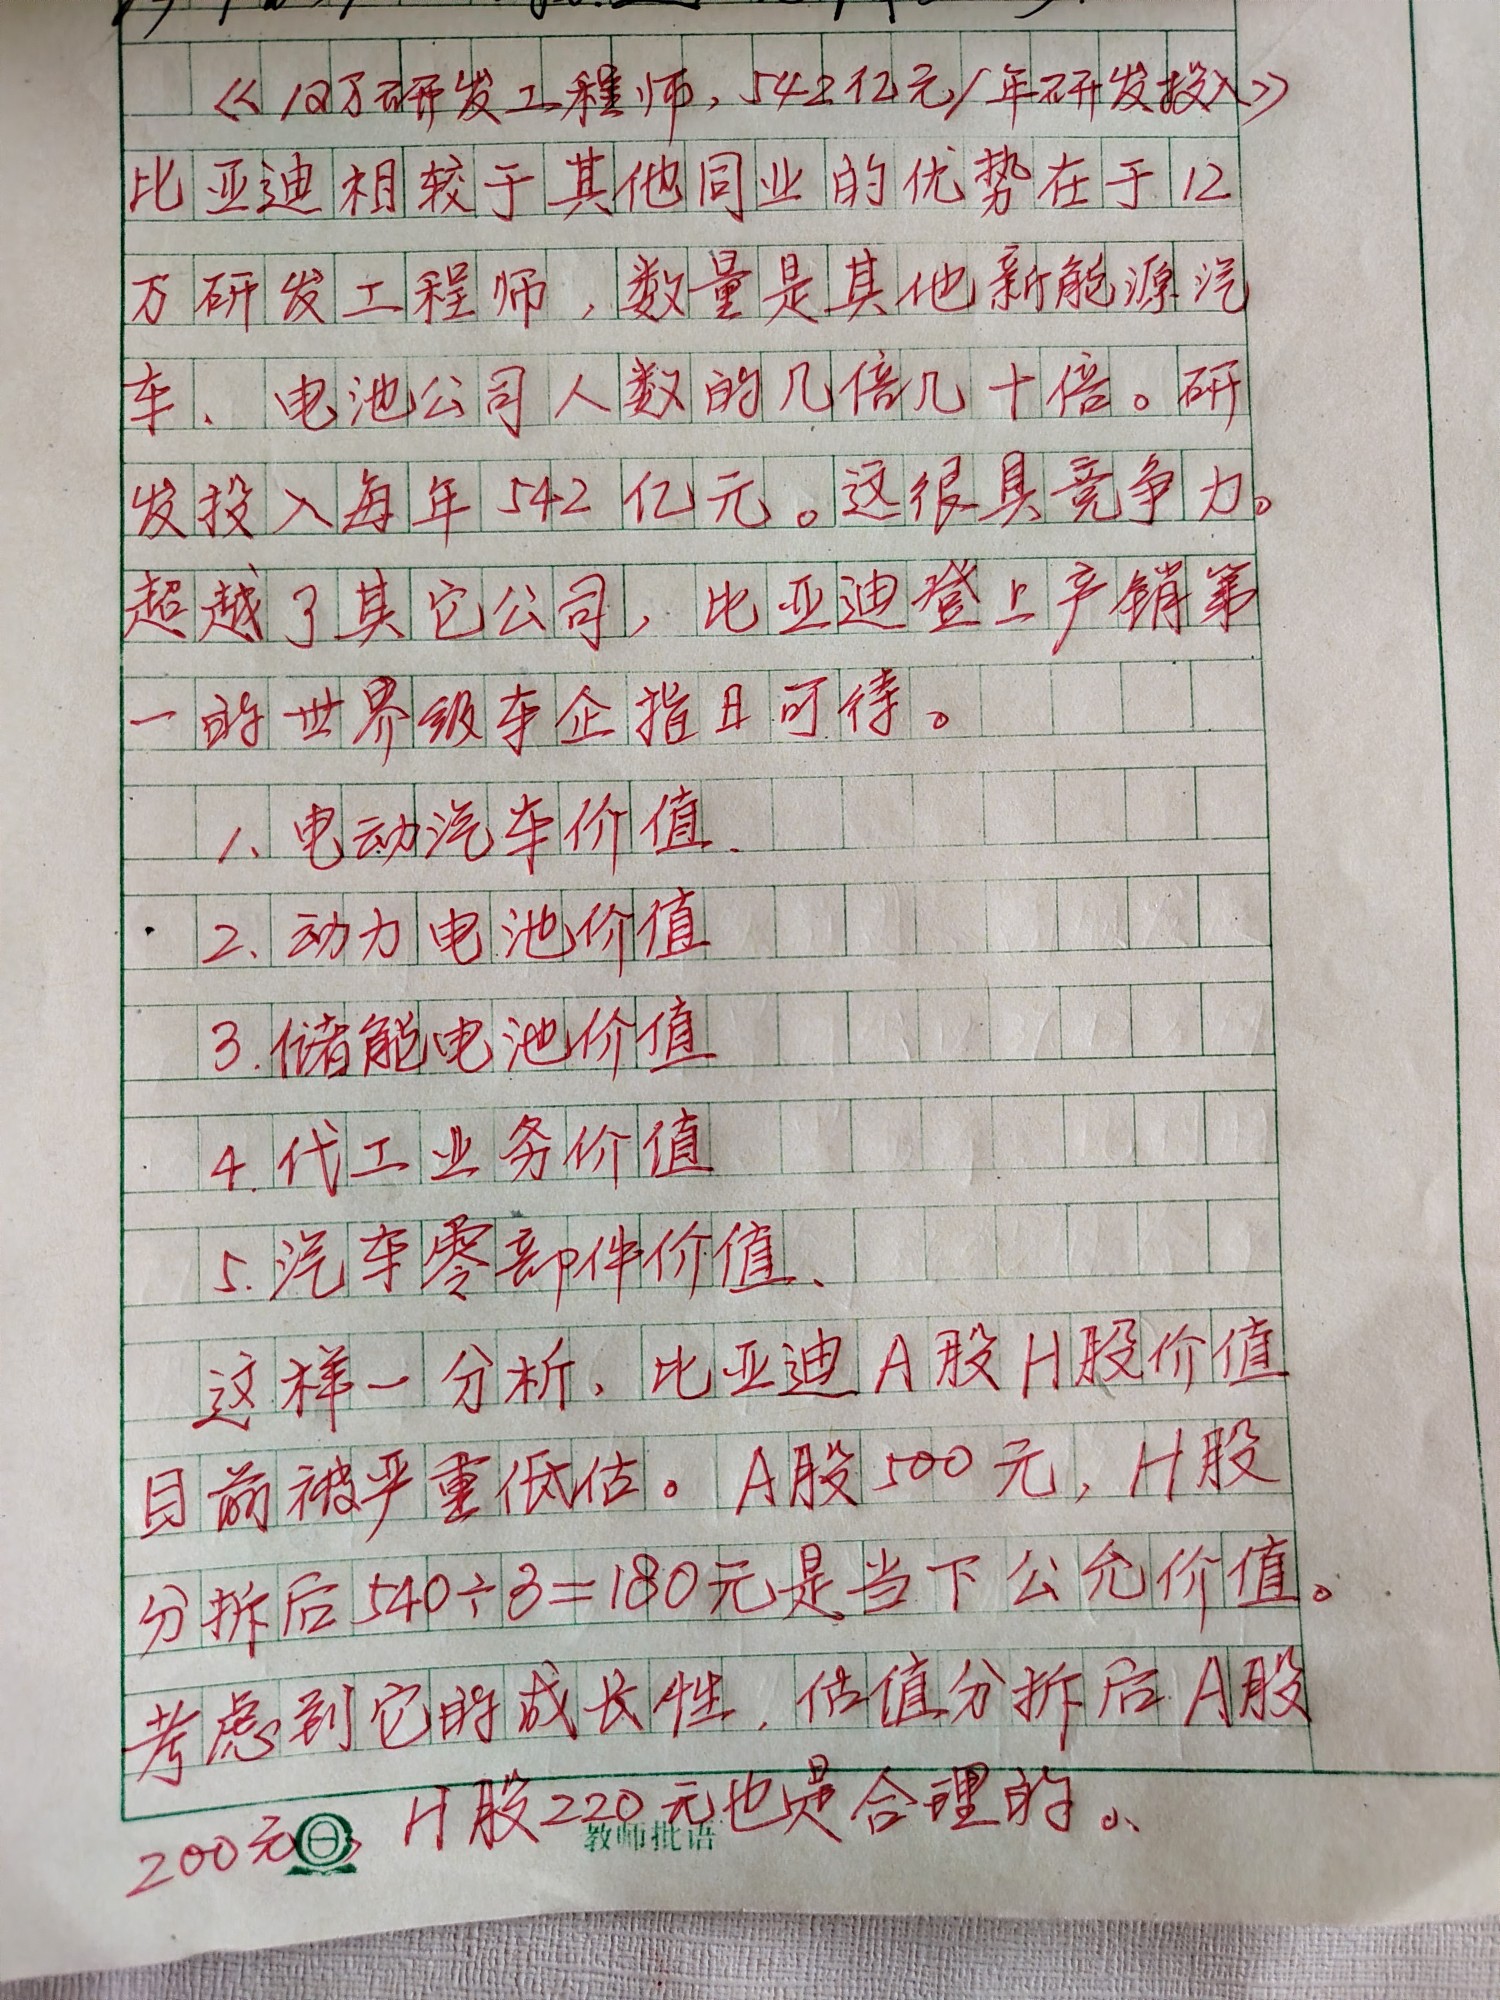 《12万研发工程师,542亿元/年研发投入》
比亚迪相较于其他同业的优势在于12
万研发工程师,数量是其他新能源汽
车、电池公司人数的几倍几十倍。研
发投入每年542亿元。这很具竞争力。
超越了其它公司,比亚迪登上产销第
一的世界级车企指日可待。
1、电动汽车价值、
2、动力电池价值
3.储能电池价值
4.代工业务价值
5.汽车零部件价值、
这样一分析,比亚迪A股H股价值
目前被严重低估。A股500元,H股
分拆后540÷3=180元是当下公允价值。
考虑到它的成长性,估值分拆后A股
200元,H股220元也是合理的。
教师批语